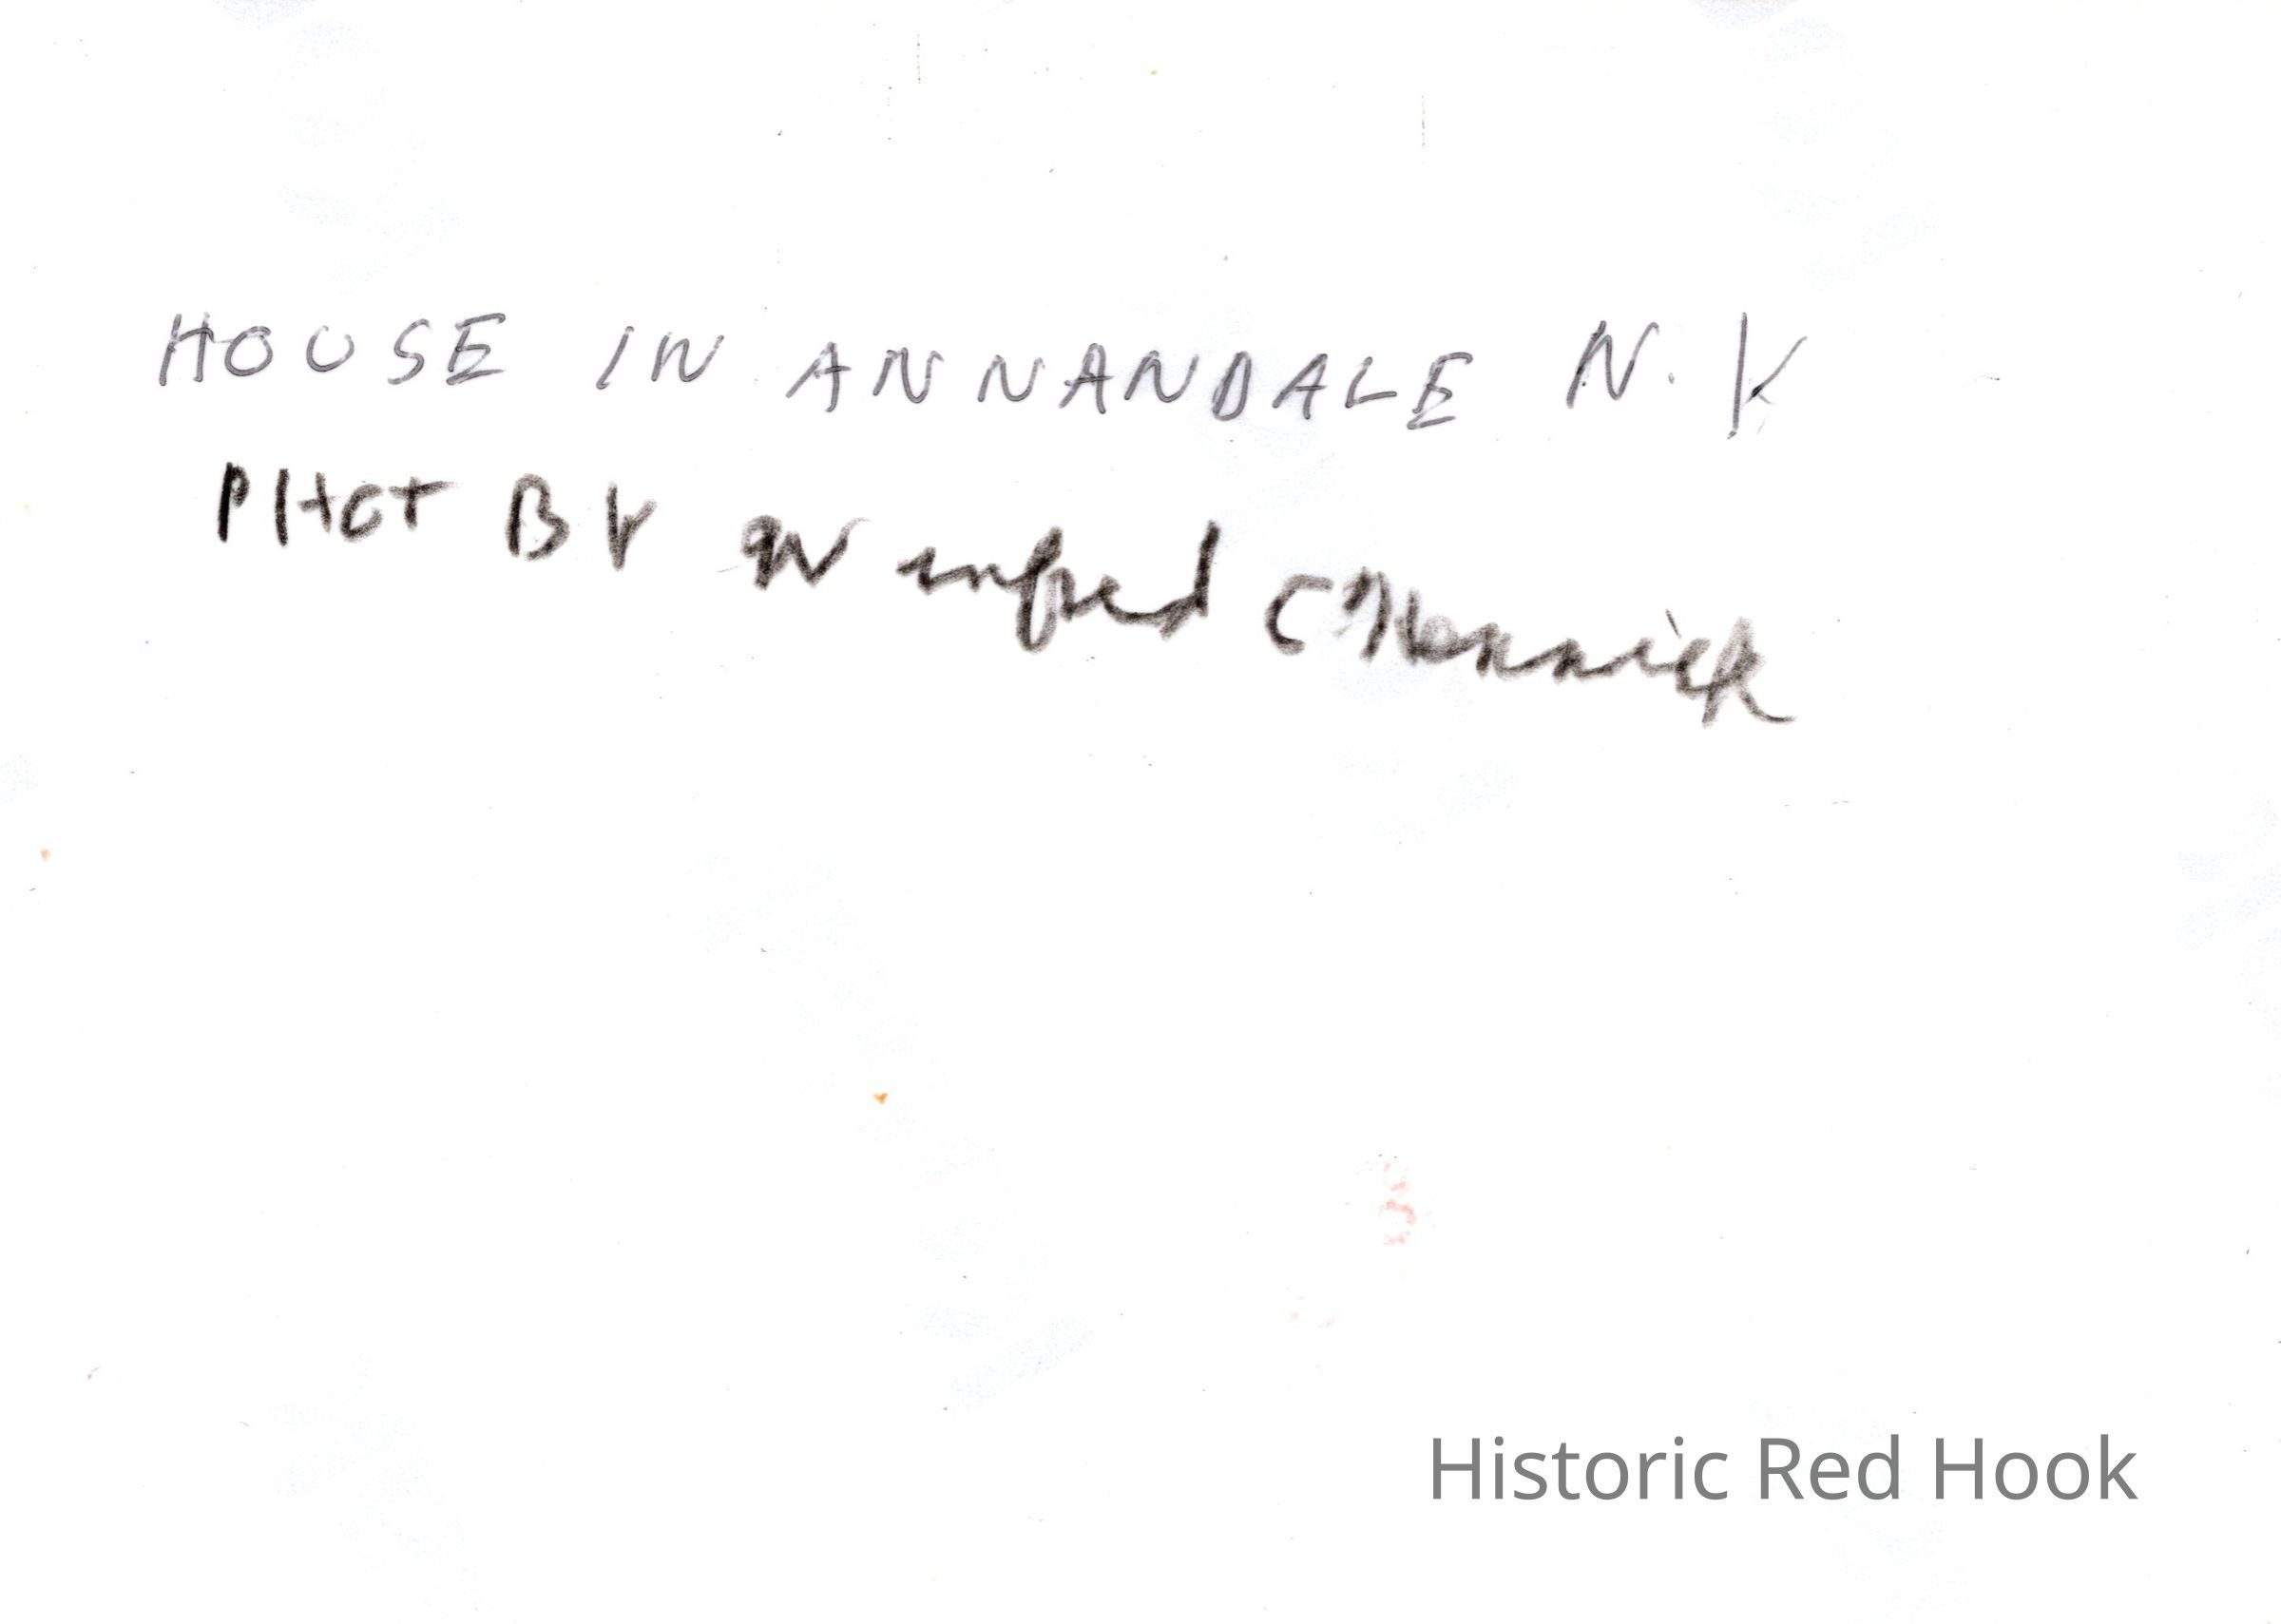 HOUSE IN ANNANDALE N.Y
PHOT BY Winfred C Rennick
Historic Red Hook